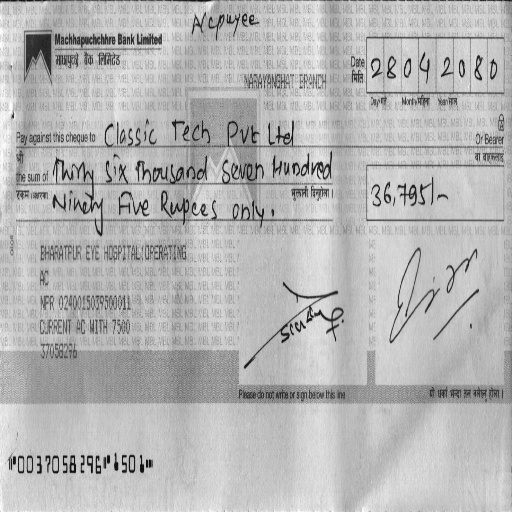 A/c payee
Machhapuchchhre Bank Limited
माछापुच्छ्रे बैंक लिमिटेड
NARAYANGHAT BRANCH
Date मिति 28042080
Day गते Month महिना Year साल
Pay against this cheque to Classic Tech Pvt Ltd
Or Bearer
श्री
वा वाहकलाई
the sum of Thirty Six Thousand Seven Hundred
रकम (अक्षरमा) भुक्तानी दिनुहोला ।
Ninety Five Rupees only.
36,795/-
BHARATPUR EYE HOSPITAL(OPERATING
AC
NPR 0240015039500011
CURRENT AC WITH 7500
37058296
Please do not write or sign below this line
यो धर्का भन्दा तल नलेख्नु होला ।
0037058296 1501